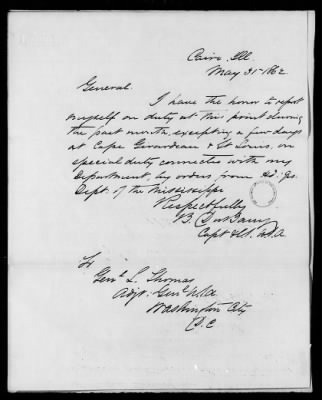 Cairo, Ill.
May 31-1862
General.
I have the honor to report
myself on duty at this point during
the past month, excepting a few days
at Cape Girardeau & St Louis, on
special duty connected with my
Department, by orders from Hd. Qs.
Dept. of the Mississippi
Respectfully
B. DuBarry
Capt & U.S.A
To
Genl L. Thomas
Adjt. Genl USA
Washington City
D.C